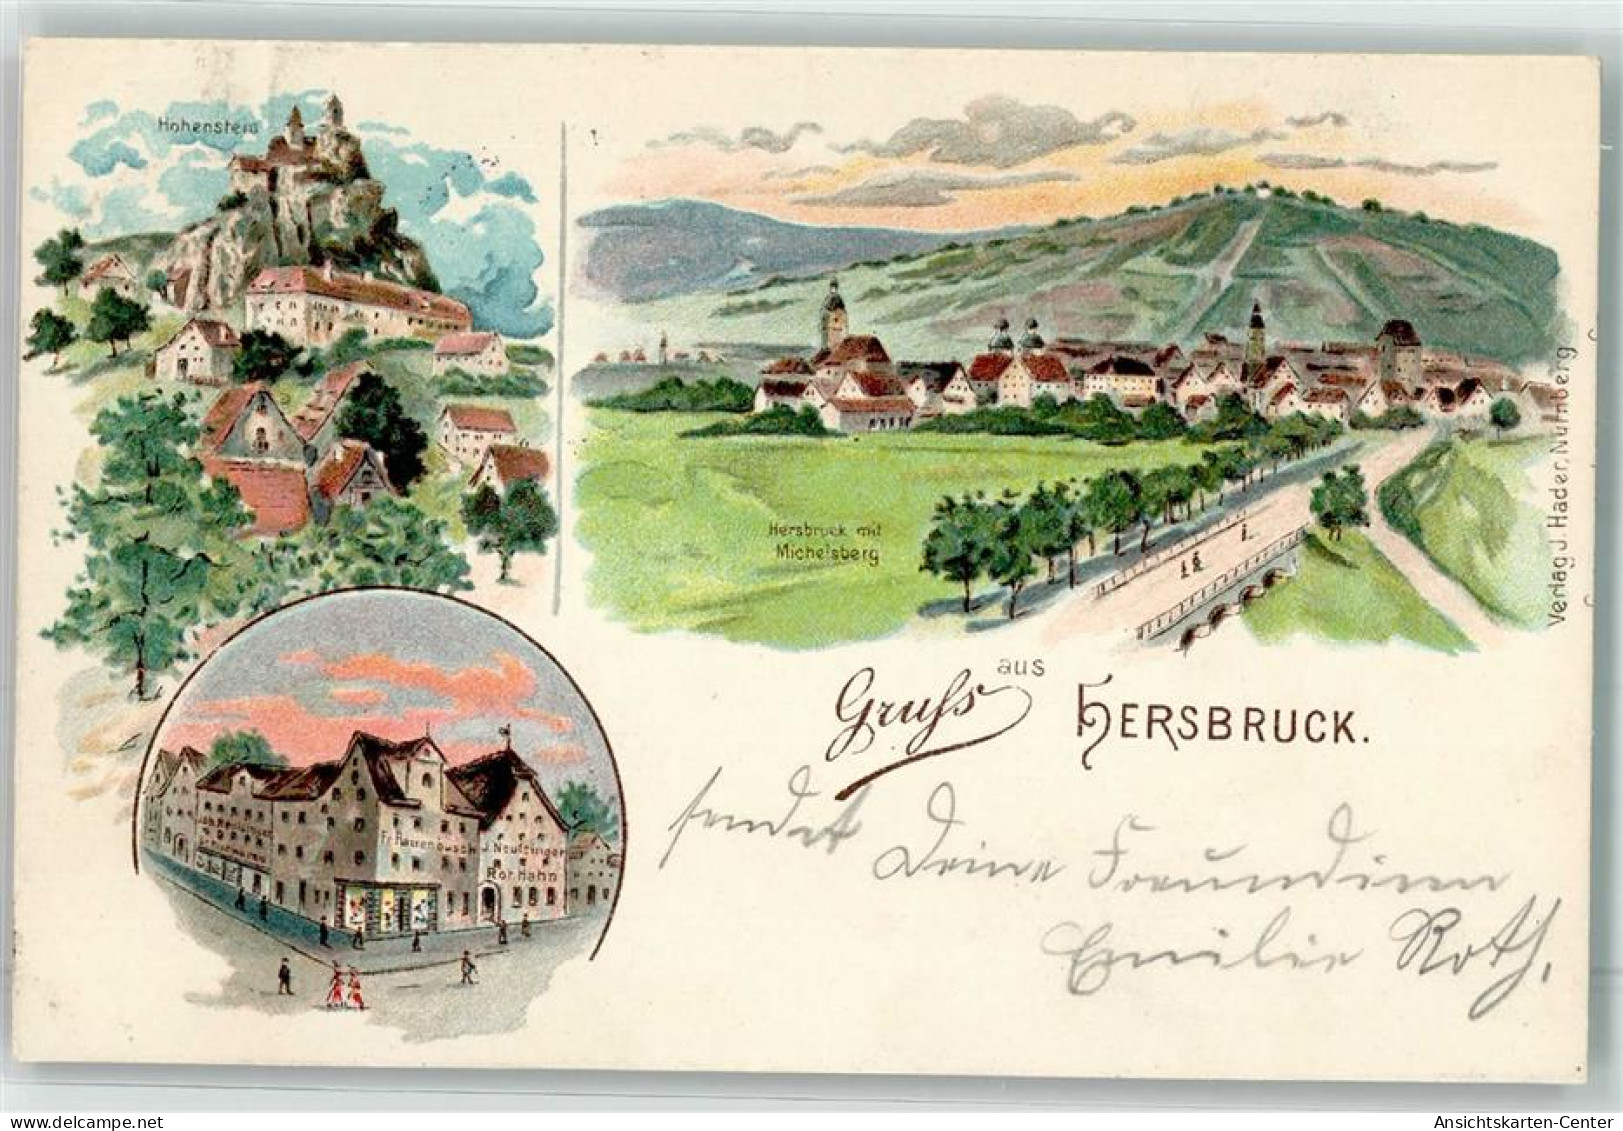 Hohenstein
Hersbruck mit
Michelsberg
Verlag J. Hader, Nürnberg
Gruss aus HERSBRUCK.
Fr. Rauenbusch
J. Neussinger
Rot. Hahn
sendet
Deine Freundinn
Emilie Roth,
Ansichtskarten-Center
delcampe.net